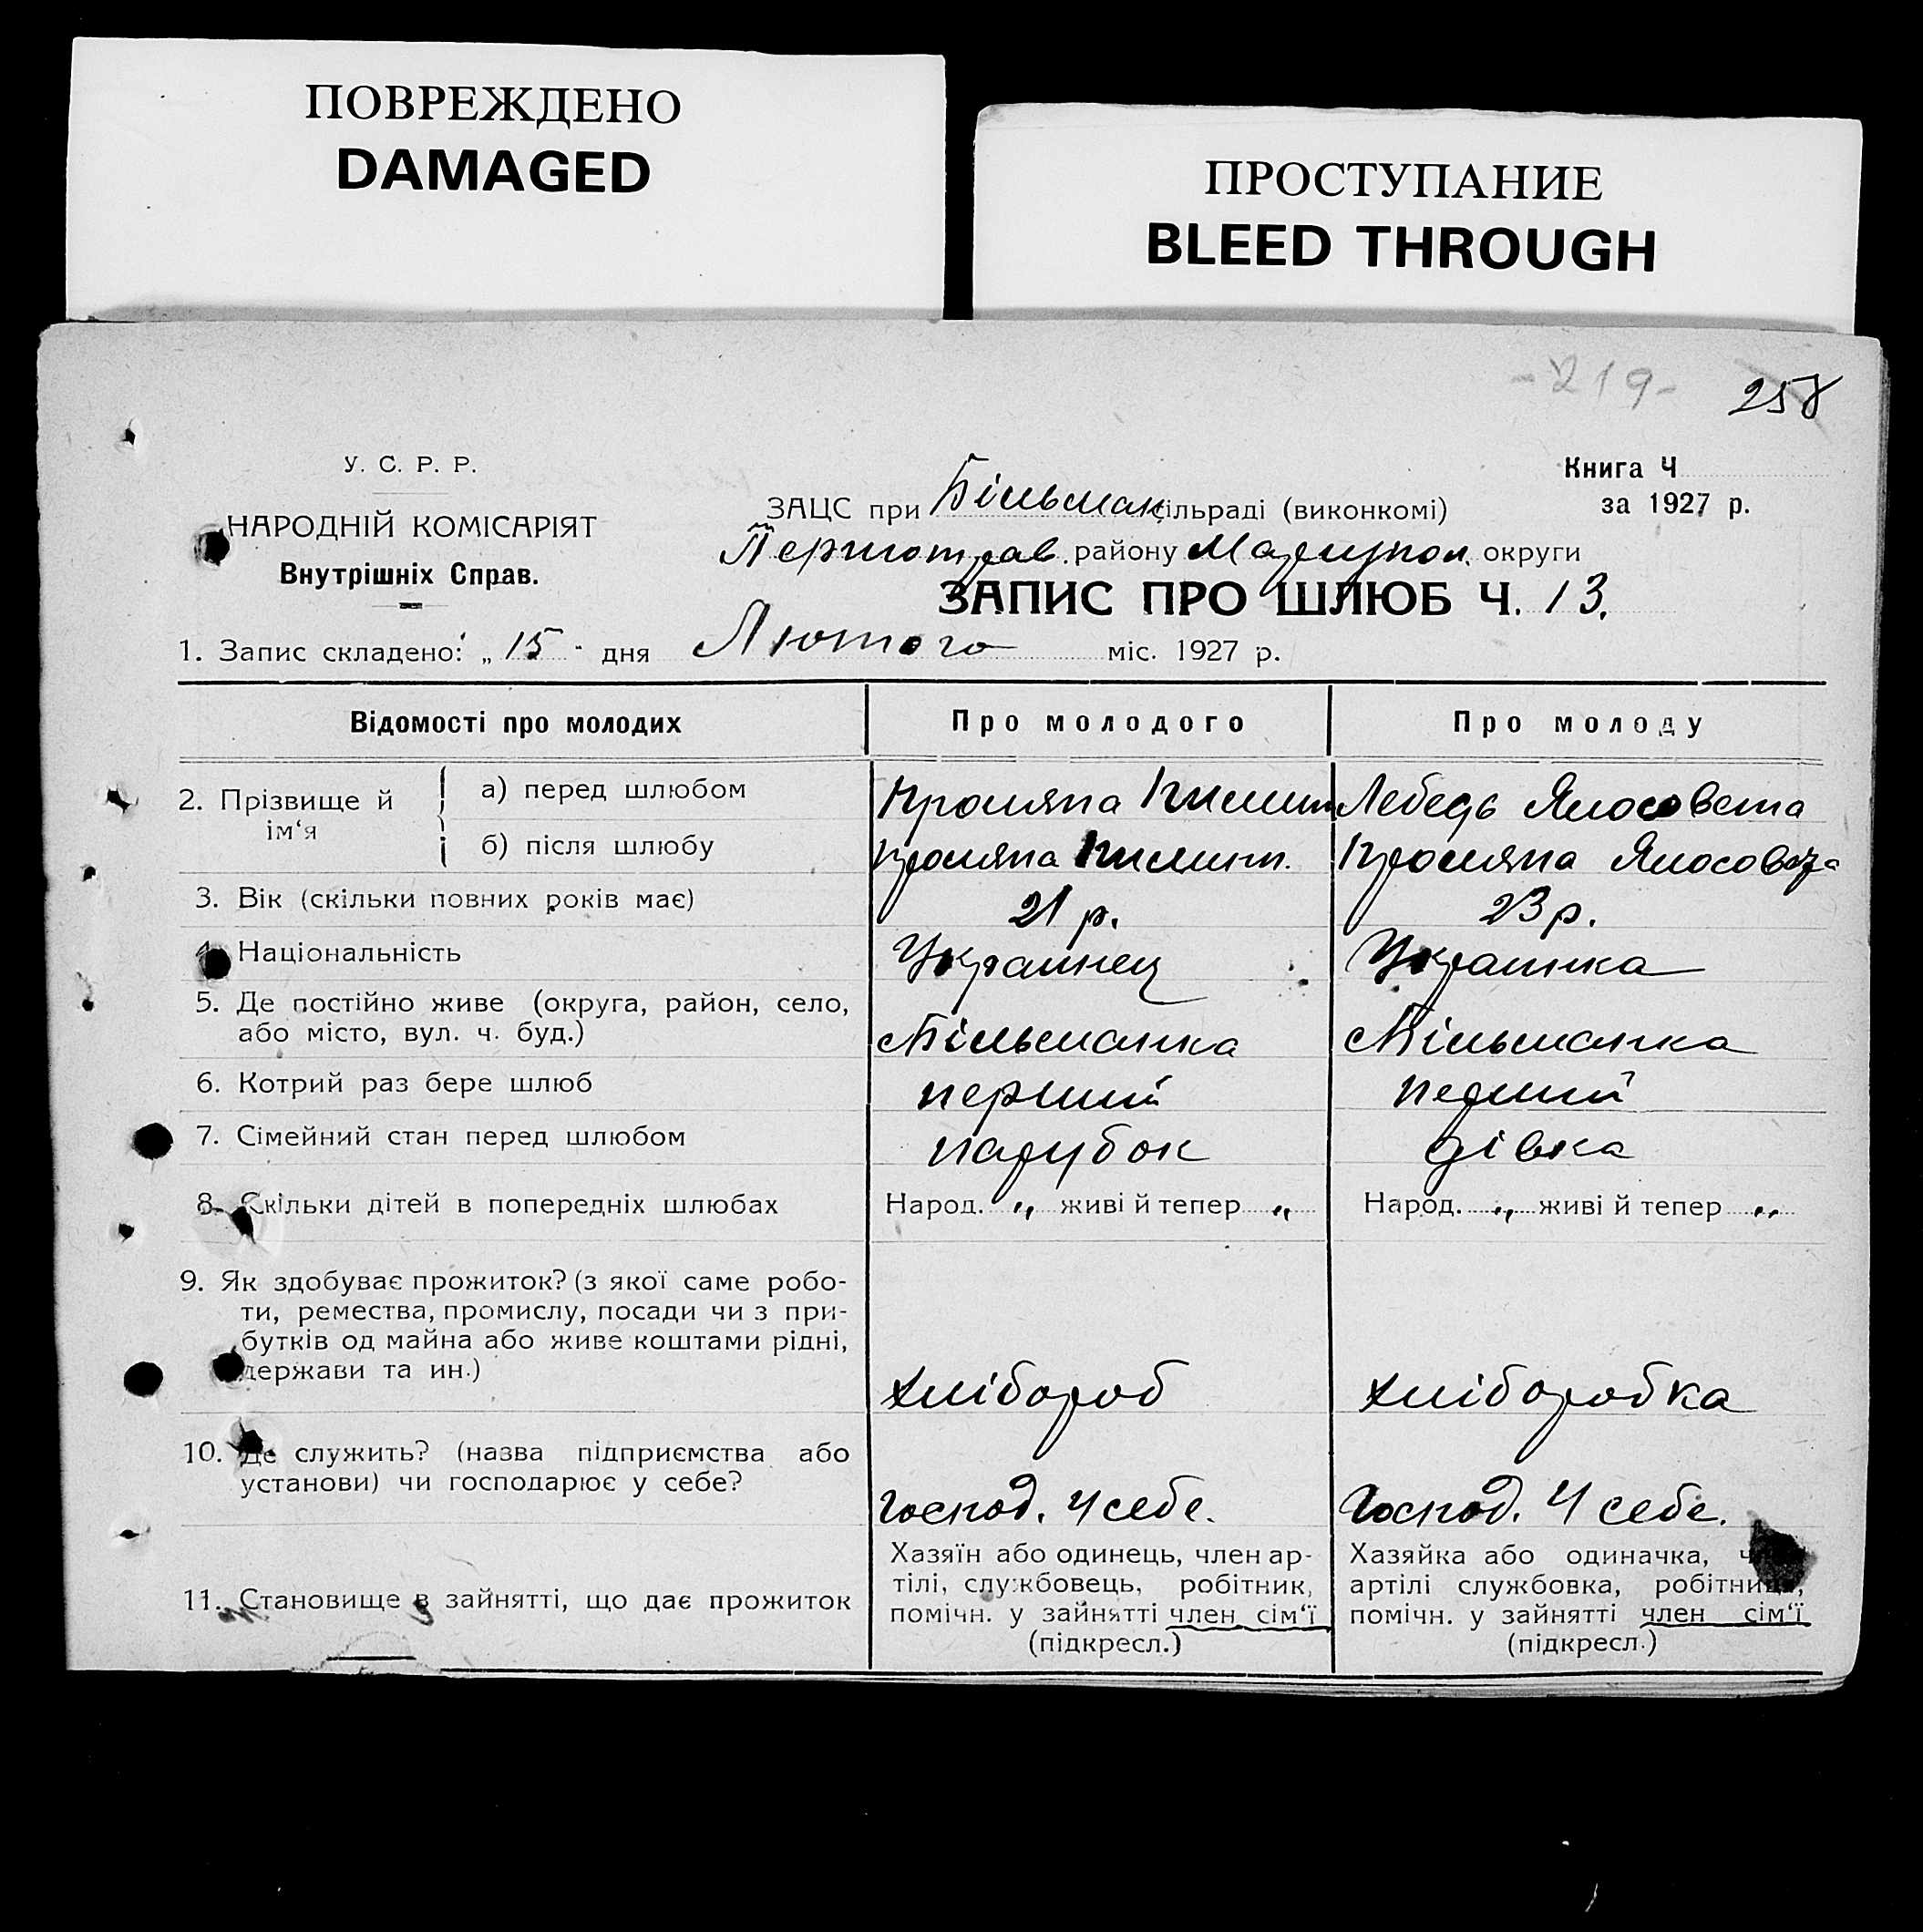 ПОВРЕЖДЕНО
DAMAGED
ПРОСТУПАНИЕ
BLEED THROUGH
-219- 258
У. С. Р. Р.
НАРОДНІЙ КОМІСАРІЯТ
Внутрішніх Справ.
Книга Ч
за 1927 р.
ЗАЦС при Більмак сільраді (виконкомі)
Першотрав. району Маріупол. округи
ЗАПИС ПРО ШЛЮБ Ч. 13.
1. Запис складено: „ 15 " дня Лютого міс. 1927 р.
Відомості про молодих Про молодого Про молоду
2. Прізвище й ім‘я
а) перед шлюбом Кроляпа Лебедь Ялосовета
б) після шлюбу Кроляпа Кроляпа
3. Вік (скільки повних років має) 21 р. 23 р.
4. Національність Украинец Украинка
5. Де постійно живе (округа, район, село,
або місто, вул. ч. буд.) Більманка Більманка
6. Котрий раз бере шлюб перший перший
7. Сімейний стан перед шлюбом парубок дівка
8. Скільки дітей в попередніх шлюбах Народ. „ живі й тепер „ Народ. „ живі й тепер „
9. Як здобуває прожиток? (з якої саме робо-
ти, ремества, промислу, посади чи з при-
бутків од майна або живе коштами рідні,
держави та ин.) хлібороб хліборобка
10. Де служить? (назва підприємства або
установи) чи господарює у себе? Господ. У себе. Господ. У себе.
11. Становище в зайнятті, що дає прожиток
Хазяїн або одинець, член ар-
тілі, службовець, робітник,
помічн. у зайнятті член сім‘ї
(підкресл.)
Хазяйка або одиначка,
артілі службовка, робітниця,
помічн. у зайнятті член сім‘ї
(підкресл.)